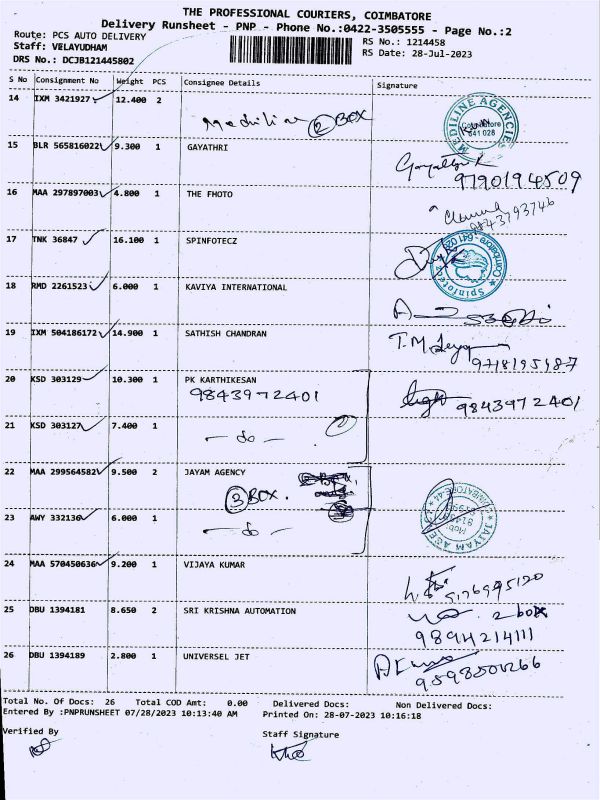 THE PROFESSIONAL COURIERS, COIMBATORE
Delivery Runsheet - PNP - Phone No.:0422-3505555 - Page No.:2
Route: PCS AUTO DELIVERY
Staff: VELAYUDHAM
DRS No.: DCJB121445802
RS No.: 1214458
RS Date: 28-Jul-2023
S No Consignment No Weight PCS Consignee Details Signature
14 IXM 3421927 12.400 2
2 BOX
MEDILINE AGENCIES
Coimbatore
641 028
15 BLR 565816022 9.300 1 GAYATHRI
Gayathri R
9790194509
16 MAA 297897003 4.800 1 THE FHOTO
9843793746
17 TNK 36847 16.100 1 SPINFOTECZ
18 RMD 2261523 6.000 1 KAVIYA INTERNATIONAL
19 IXM 504186172 14.900 1 SATHISH CHANDRAN
20 KSD 303129 10.300 1 PK KARTHIKESAN
9843972401
9843972401
21 KSD 303127 7.400 1
- do -
22 MAA 299564582 9.500 2 JAYAM AGENCY
3 BOX.
23 AWY 332136 6.000 1
- do -
24 MAA 570450636 9.200 1 VIJAYA KUMAR
25 DBU 1394181 8.650 2 SRI KRISHNA AUTOMATION
2 box
9894214111
26 DBU 1394189 2.800 1 UNIVERSEL JET
Total No. Of Docs: 26 Total COD Amt: 0.00 Delivered Docs: Non Delivered Docs:
Entered By :PNPRUNSHEET 07/28/2023 10:13:40 AM Printed On: 28-07-2023 10:16:18
Verified By
Staff Signature